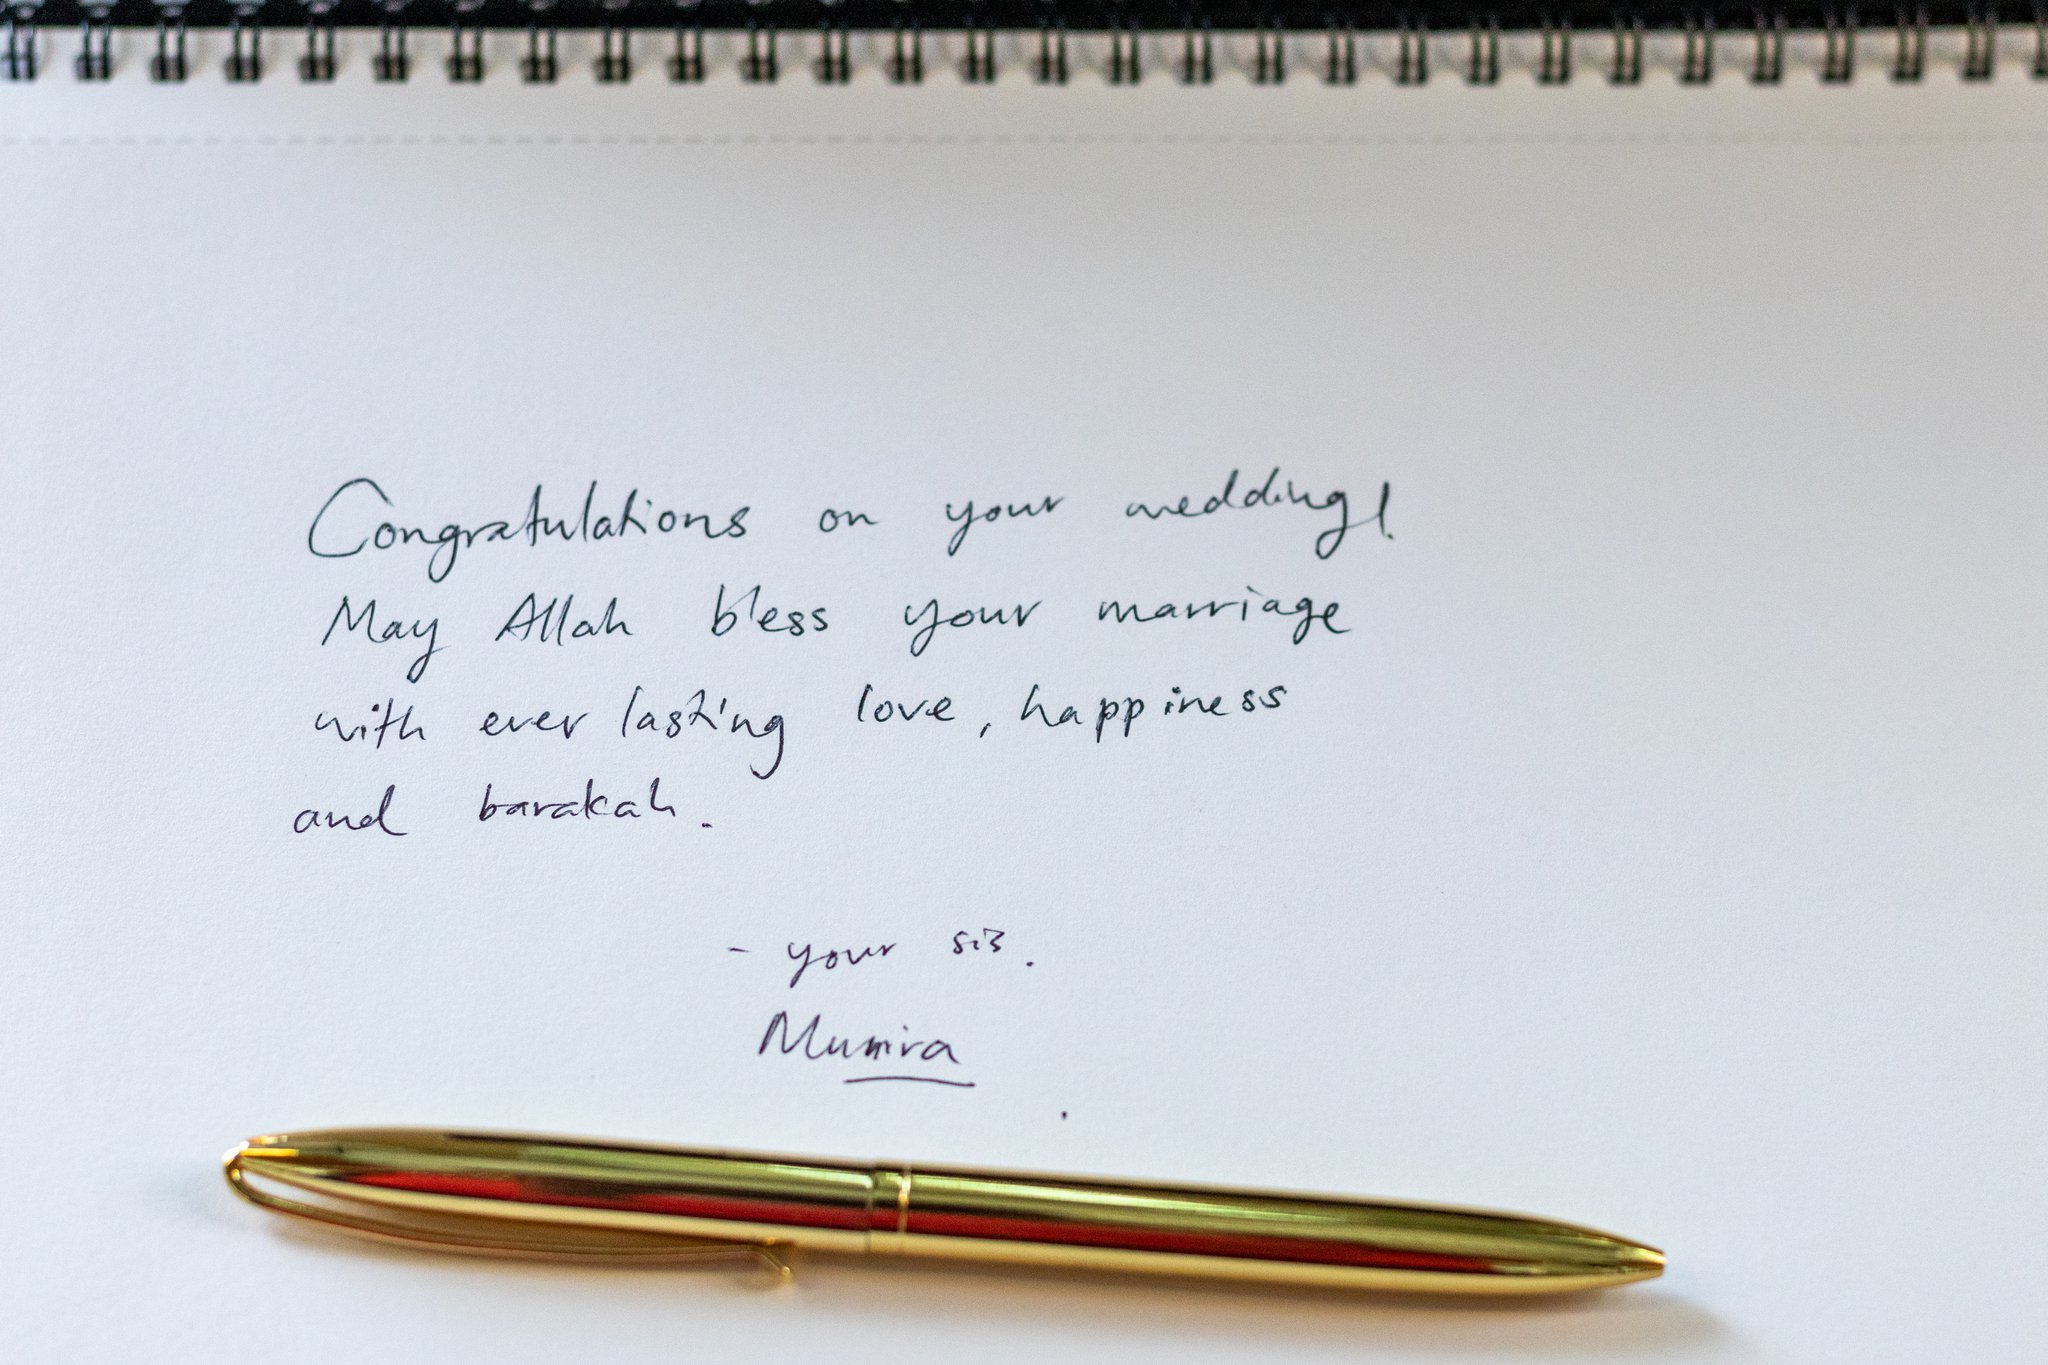 Congratulations on your wedding!
May Allah bless your marriage
with ever lasting love, happiness
and barakah.
- your sis.
Munira